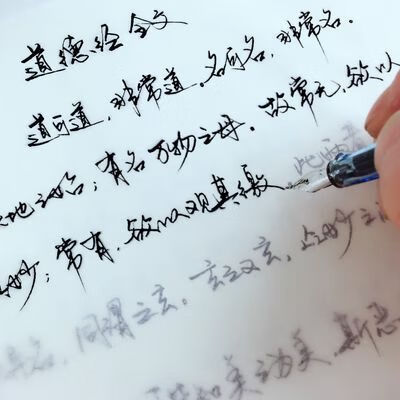 道德经全文
道可道,非常道,名可名,非常名。
地之始;有名万物之母。故常无,欲以
妙;常有,欲以观其徼 此两者
异名,同谓之玄。玄之又玄,众妙之
皆知美之为美,斯恶